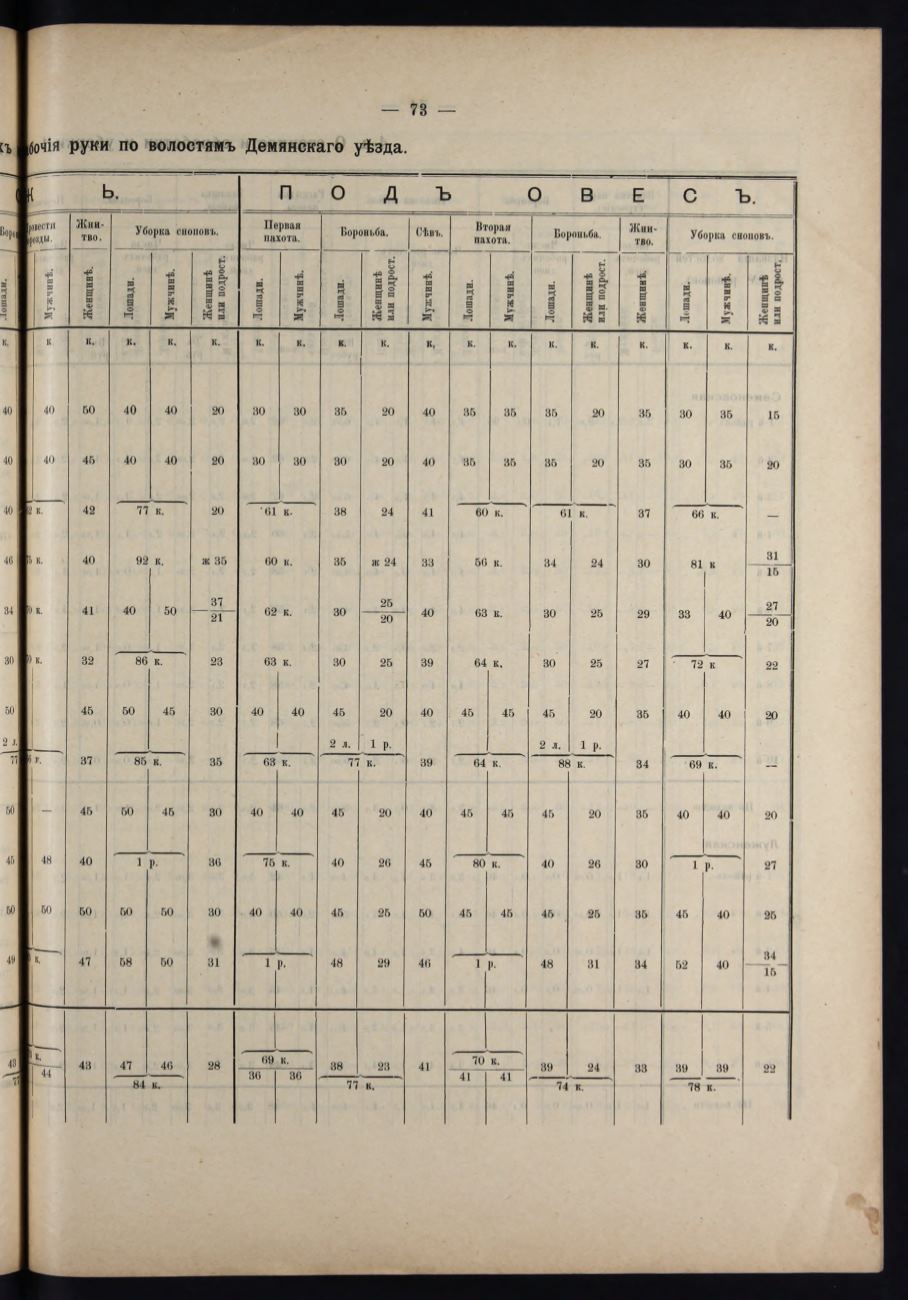 — 73 —
бочія руки по волостямъ Демянскаго уѣзда.
Ь. ПОДЪ ОВЕСЪ.
Жни-тво. Уборка сноповъ. Первая пахота. Бороньба. Сѣвъ. Вторая пахота. Бороньба. Жни-тво. Уборка сноповъ.
Мужчинѣ. Женщинѣ. Лошади. Мужчинѣ. Женщинѣ или подрост. Лошади. Мужчинѣ. Лошади. Женщинѣ или подрост. Мужчинѣ. Лошади. Мужчинѣ. Лошади. Женщинѣ или подрост. Женщинѣ. Лошади. Мужчинѣ. Женщинѣ или подрост.
к. к к. к. к. к. к. к. к. к. к. к. к. к. к. к. к. к. к.
40 40 50 40 40 20 30 30 35 20 40 35 35 35 20 35 30 35 15
40 40 45 40 40 20 30 30 30 20 40 35 35 35 20 35 30 35 20
40 2 к. 42 77 к. 20 61 к. 38 24 41 60 к. 61 к. 37 66 к. —
46 5 к. 40 92 к. ж 35 60 к. 35 ж 24 33 56 к. 34 24 30 81 к 31/15
34 0 к. 41 40 50 37/21 62 к. 30 25/20 40 63 к. 30 25 29 33 40 27/20
30 к. 32 86 к. 23 63 к. 30 25 39 64 к. 30 25 27 72 к 22
50 45 50 45 30 40 40 45 20 40 45 45 45 20 35 40 40 20
2 л. 2 л. 1 р. 2 л. 1 р.
77 37 85 к. 35 63 к. 77 к. 39 64 к. 88 к. 34 69 к. —
50 — 45 50 45 30 40 40 45 20 40 45 45 45 20 35 40 40 20
45 48 40 1 р. 36 75 к. 40 26 45 80 к. 40 26 30 1 р. 27
50 50 50 50 50 30 40 40 45 25 50 45 45 45 25 35 45 40 25
49 к. 47 58 50 31 1 р. 48 29 46 1 р. 48 31 34 52 40 34/15
к. 69 к. 70 к.
43 44 43 47 46 28 36 36 38 23 41 41 41 39 24 33 39 39 22
77 84 к. 77 к. 74 к. 78 к.